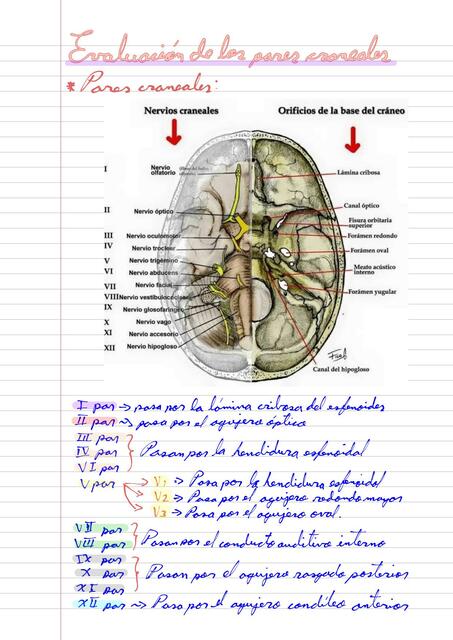 Evaluación de los pares craneales
* Pares craneales:
Nervios craneales
Orificios de la base del cráneo
I Nervio olfatorio
Lámina cribosa
II Nervio óptico
Canal óptico
Fisura orbitaria superior
III Nervio oculomotor
Forámen redondo
IV Nervio troclear
Forámen oval
V Nervio trigémino
VI Nervio abducens
Meato acústico interno
VII Nervio facial
VIII Nervio vestibulococlear
Forámen yugular
IX Nervio glosofaríngeo
X Nervio vago
XI Nervio accesorio
XII Nervio hipogloso
Canal del hipogloso
I par -> pasa por la lámina cribosa del esfenoides
II par -> pasa por el agujero óptico
III par
IV par } Pasan por la hendidura esfenoidal
VI par
V par V1 -> Pasa por la hendidura esfenoidal
V2 -> Pasa por el agujero redondo mayor
V3 -> Pasa por el agujero oval.
VII par
VIII par } Pasan por el conducto auditivo interno
IX par
X par } Pasan por el agujero rasgado posterior
XI par
XII par ~> Pasa por el agujero condíleo anterior